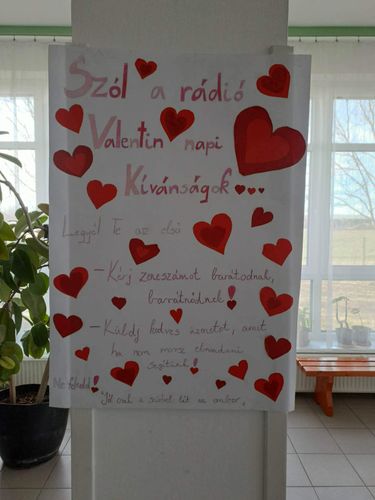 Szól a rádió
Valentin napi
Kívánságok...
Legyél Te az első
- Kérj zeneszámot barátodnak,
barátnődnek!
- Küldj kedves üzenetet, amit
ha nem mersz elmondani
segítünk!
Ne feledd!
"Jól csak a szívével lát az ember,